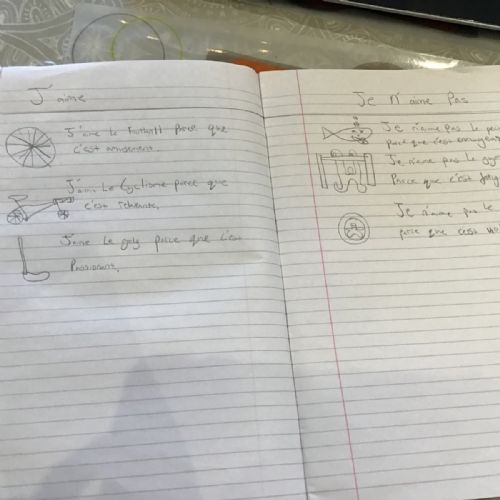 J'aime
J'aime le football parce que
c'est amusement.
J'aime Le Cyclisme parce que
c'est
J'aime le golf parce que c'est
Passionant.
Je n'aime Pas
Je n'aime pas le
parce que c'est
Je n'aime pas le
Parce que c'est
Je n'aime pas le
parce que c'est